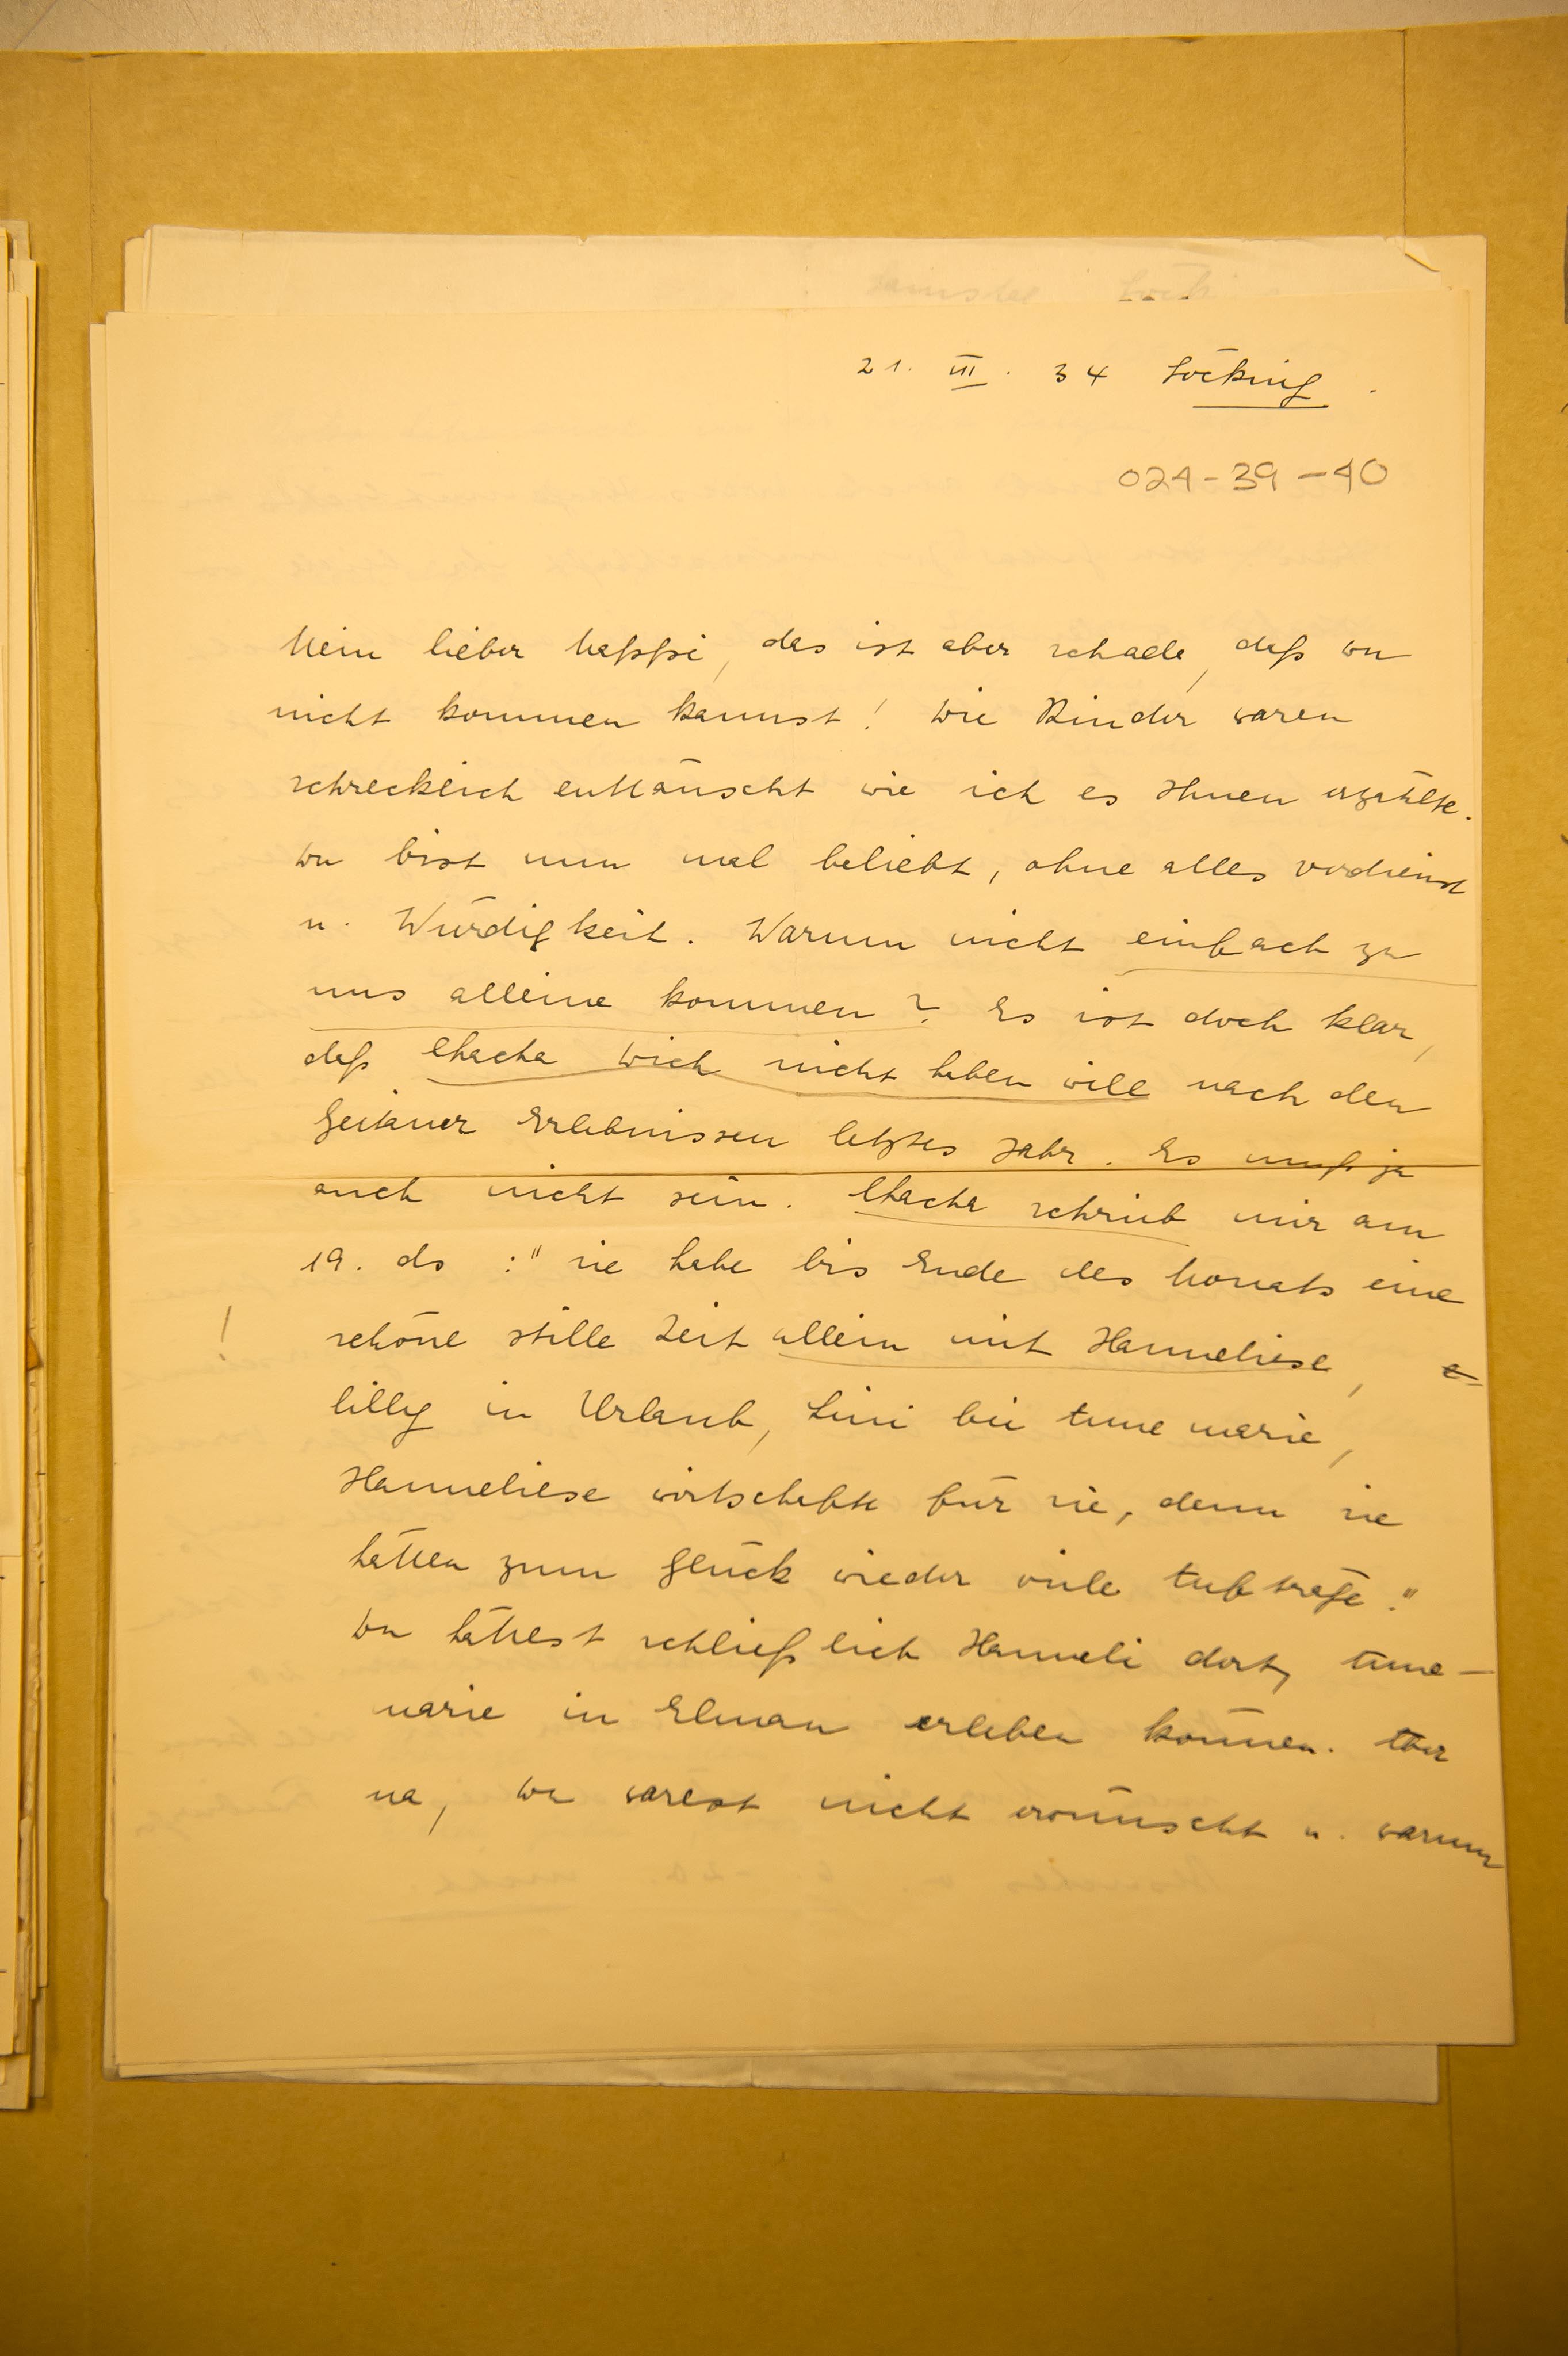 21. III. 34 Söcking.
024-39-40
Mein lieber Massi, das ist aber schade, daß Du
nicht kommen kannst! Die Kinder waren
schrecklich enttäuscht wie ich es Ihnen erzählte.
Du bist nun mal beliebt, ohne alles Verdienst
u. Würdigkeit. Warum nicht einfach zu
uns alleine kommen? Es ist doch klar,
daß Chacha Dich nicht haben will nach den
Erlebnissen letztes Jahr. Es muß ja
auch nicht sein. Chacha schrieb mir am
19. ds: "sie habe bis Ende des Monats eine
! schöne stille Zeit allein mit Hanneliese,
Lilly in Urlaub, Lini bei Annemarie,
Hanneliese wirtschafte für sie, denn sie
hätten zum Glück wieder viele Aufträge."
Du hättest schließlich Hanneli dort, Anne-
marie in Elmau erleben können. Aber
na, Du warest nicht erwünscht u. warum